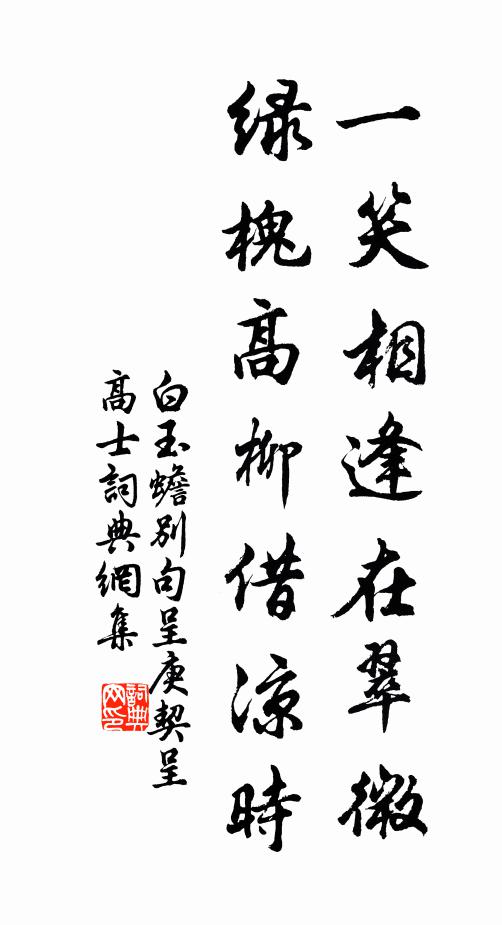 一笑相逢在翠微
绿槐高柳借涼時
白玉蟾別句呈庚契呈
高士詞典網集
詞典网印